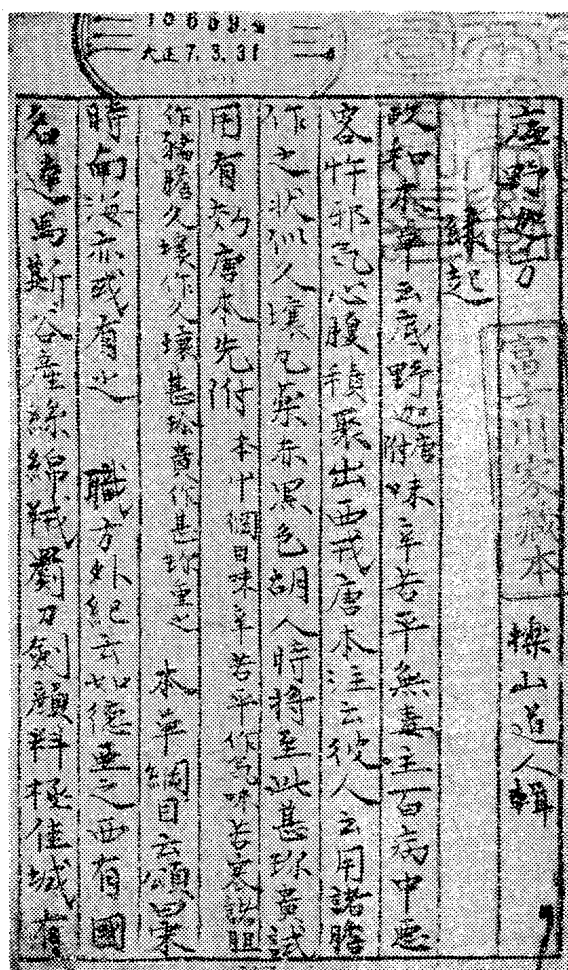 15669
大正7.3.31
底野迦方
富士川家藏本
樂山道人輯
緣起
政和本草云底野迦唐附味辛苦平無毒主百病中惡
客忤邪氣心腹積聚出西戎唐本注云彼人云用諸膽
作之狀似久壞丸藥赤黑色胡人時將至此甚珍貴試
用有効唐本先附本中網目味辛苦平作氣味苦寒諸胆
作猪膽久壞作久壞甚珍貴作甚珍重之 本草綱目云頌曰宋
時南海亦或有之 職方外紀云如德亞之西有國
名達馬斯谷產絲綿絨罽刀劍顏料極佳城有